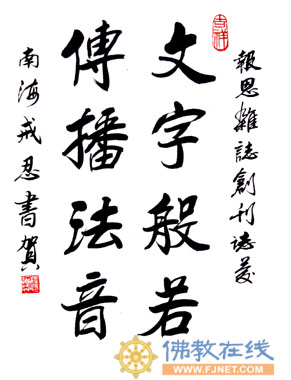 吉祥
報恩雜誌創刊誌慶
文字般若
傳播法音
南海戒忍書賀
佛教在线
WWW.FJNET.COM